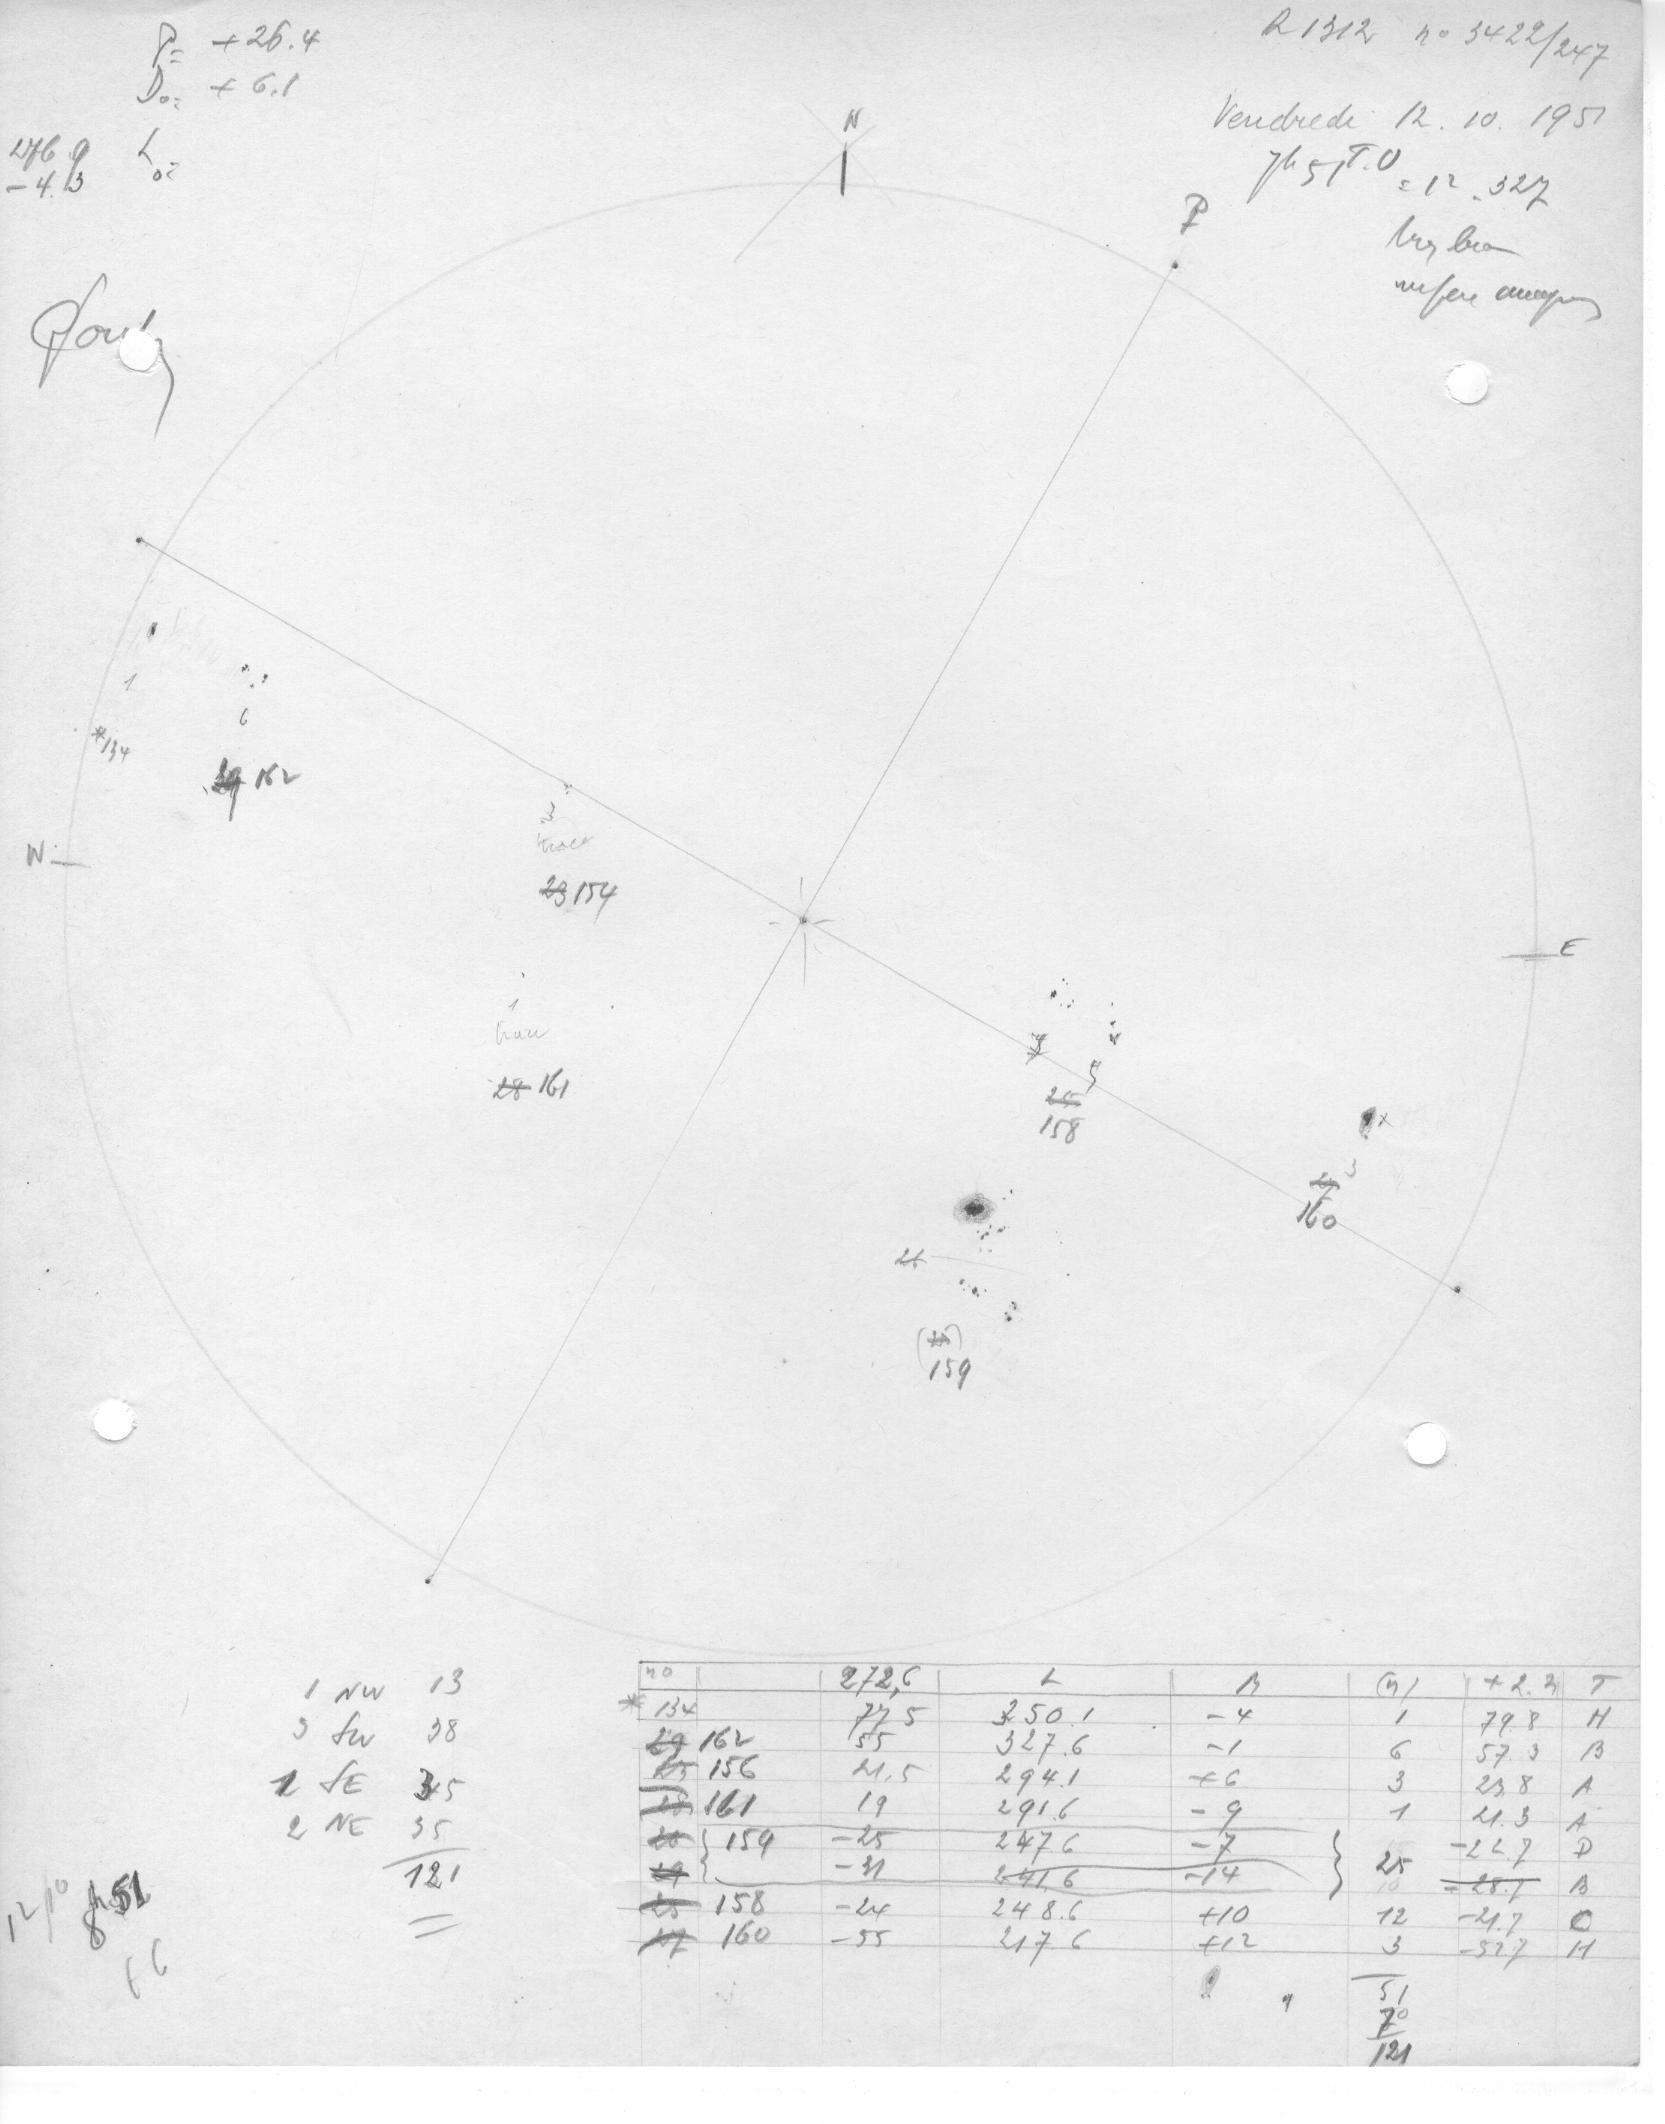 P= +26.4
Do= +6.1
276.9 Lo=
-4.3
R 1312 no 3422/247
Vendredi 12.10.1951
7h 51 T.U
=12.327
N
P
1
*134
6
162
W
3
trace
23 154
1
trace
28 161
E
7
5
25
158
3
160
26
159
1 NW 13
3 SW 38
SE 35
2 NE 35
121
12/10
51
no 272,6 L B (n) T
*134 77.5 350.1 -4 1 79.8 H
29 162 55 327.6 -1 6 57.3 B
156 21.5 294.1 +6 3 23.8 A
28 161 19 291.6 -9 1 21.3 A
159 -25 247.6 -7 25 -22.7 D
-31 241.6 -14 -28.7 B
25 158 -24 248.6 +10 12 -21.7 C
27 160 -55 217.6 +12 3 -52.7 H
51
70
121